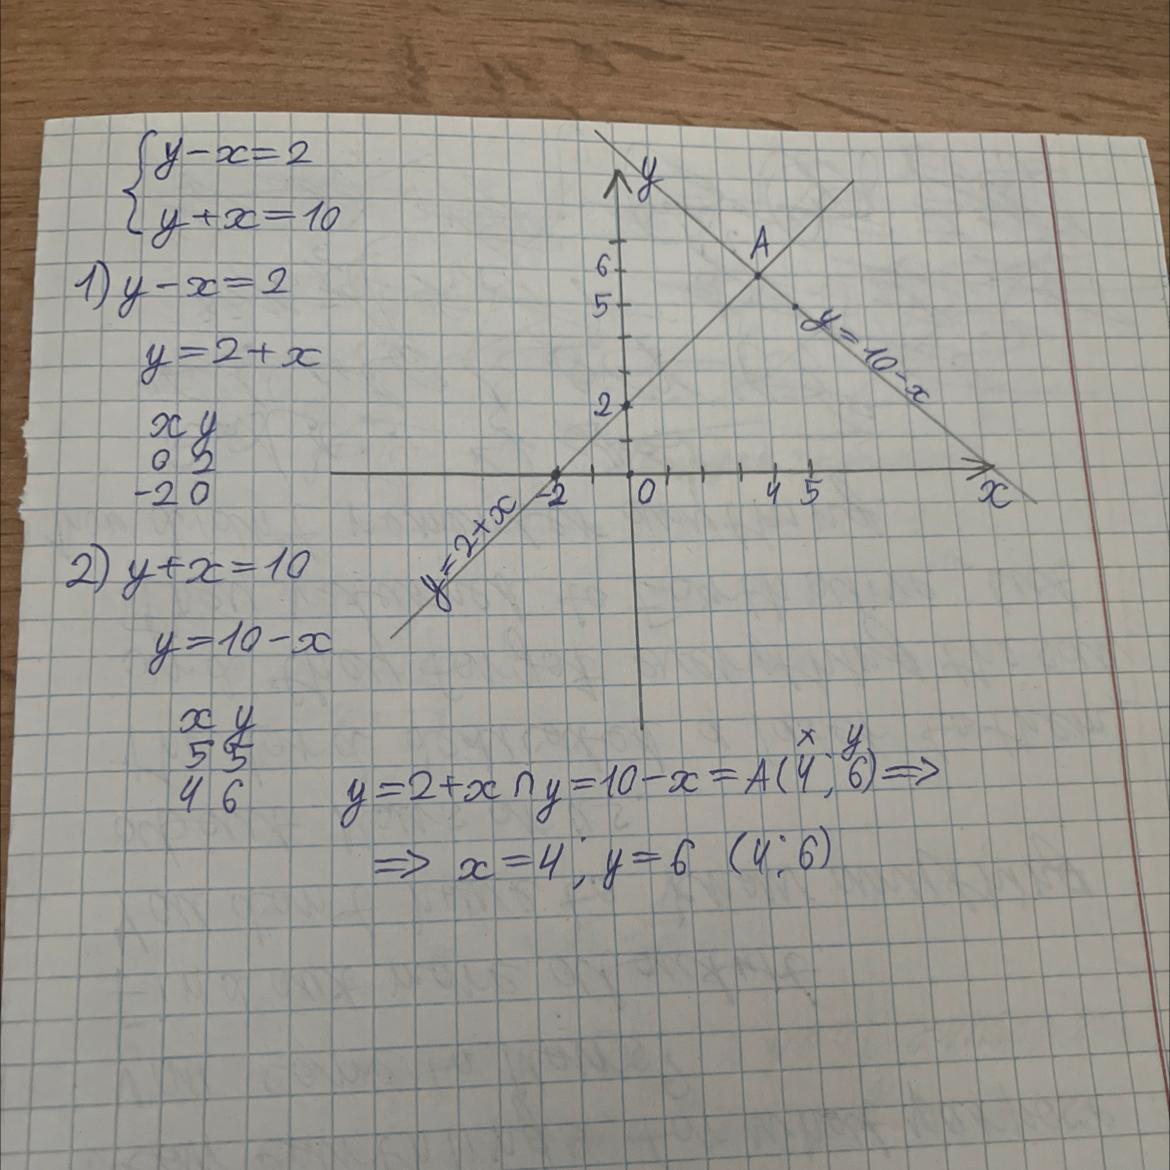 y-x=2
y+x=10
1) y-x=2
y=2+x
x y
0 2
-2 0
2) y+x=10
y=10-x
x y
5 5
4 6
y
A
6
5
2
-2 0 4 5 x
y=10-x
y=2+x
x y
y=2+x∩y=10-x=A(4;6)⇒
⇒ x=4; y=6 (4;6)